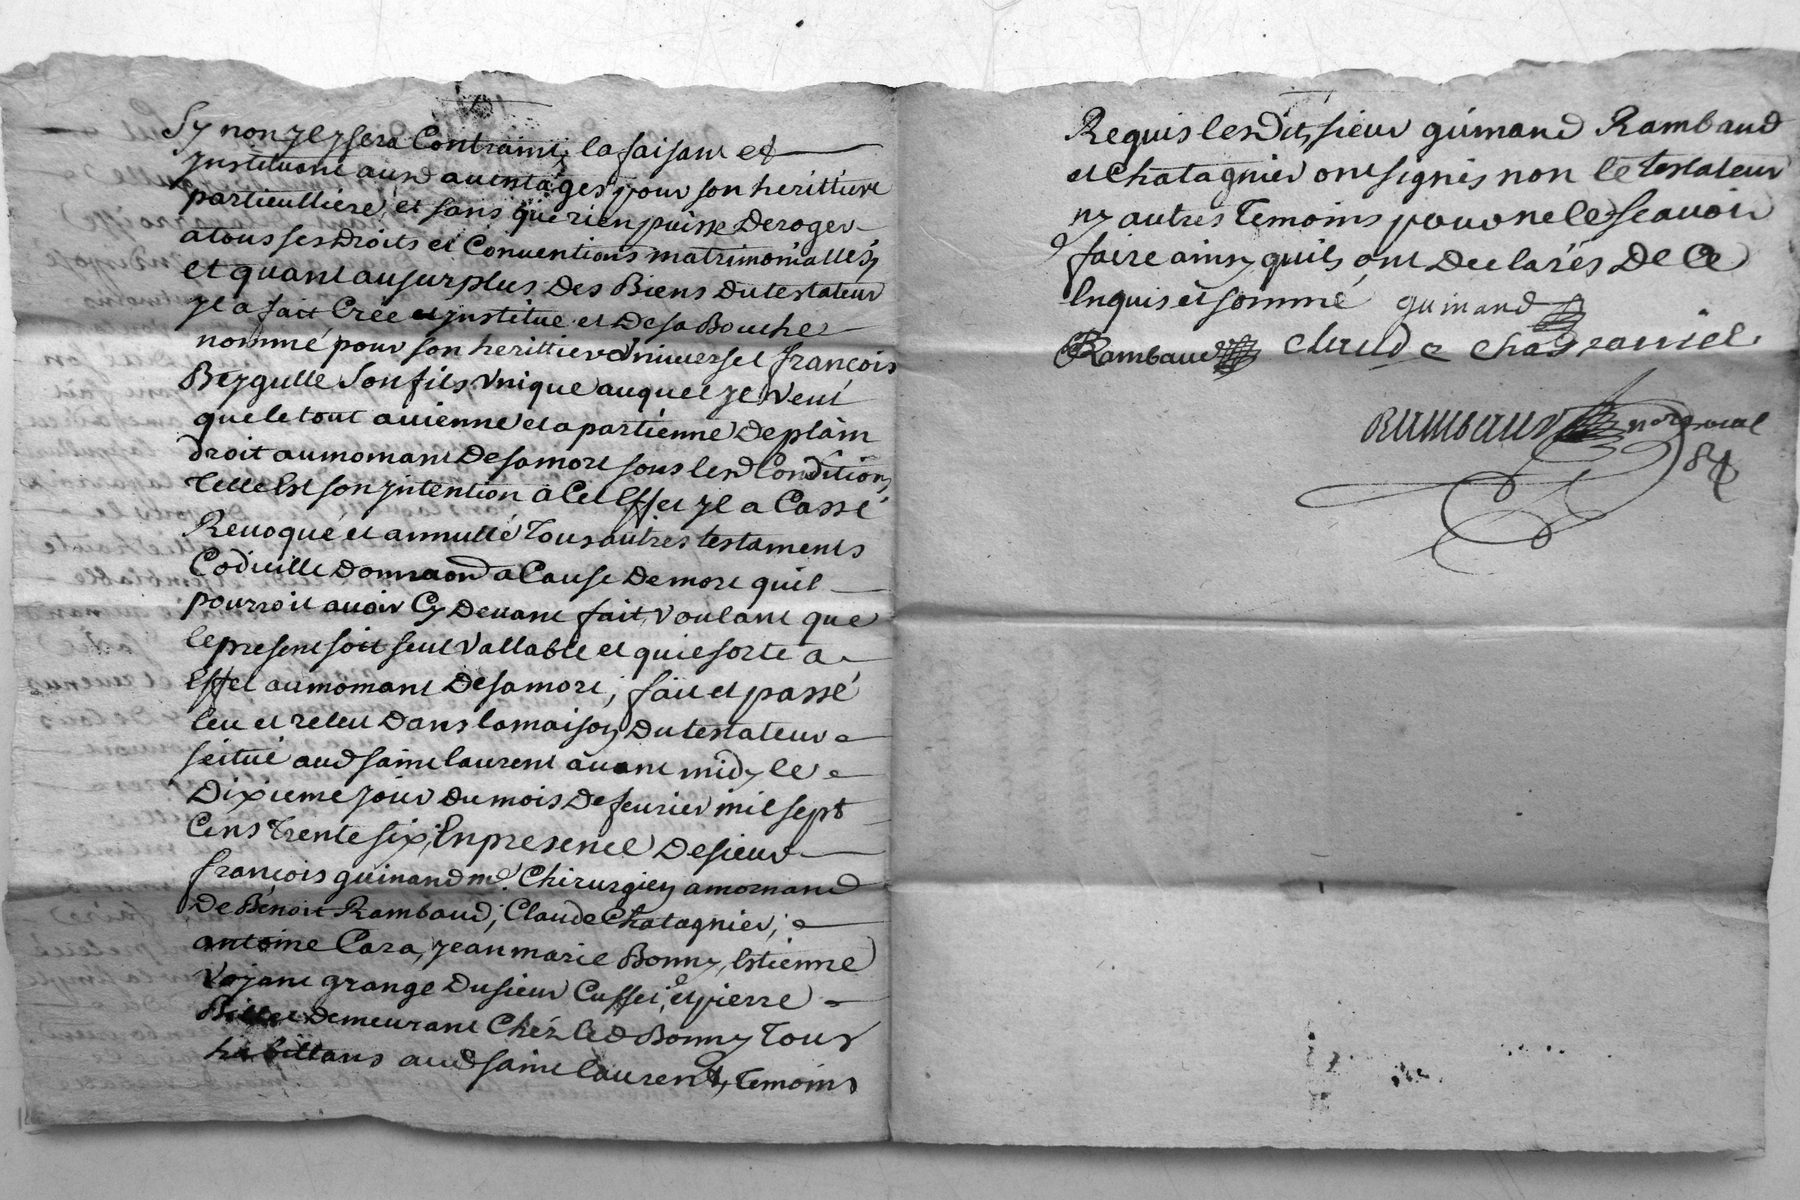 Sy non yl y sera Contraint, la faisant et
ynstituant aux d auentages pour son herittiere
particulliere, et sans que rien puisse Deroger
a tous ses Droits et Conuentions matrimonialles,
et quant au surplus Des Biens Du testateur
yl a fait Crée et ynstitue et De sa Bouche
nommé pour son herittier vniuersel françois
Beygulle Son fils vnique auquel yl veut
que le tout auienne et apartienne De plain
droit au momant De sa mort sous les d Conditions
Telle Est son yntention a Cet Effet yl a Cassé
Reuoqué et annullé Tous autres testaments
Codicille Donnaon a Cause De mort quil
pourroit auoir Cy Deuant fait, voulant que
le present soit seul vallable et qui Esorte a
Effet au momant De sa mort; fait et passé
leu et releu Dans la maison Du testateur
scitué aud saint laurent auant midy le
Dixieme jour Du mois De feurier mil sept
Cens Trente six, En presence De sieur
françois guinand me. Chirurgien a mornand
De Benoit Rambaud; Claude Chatagnier;
antoine Cara, jean marie Bonny, Estienne
Voyant grange Du sieur Cusset, et pierre
Demeurant Chéz led Bonny Tous
habittans aud saint laurent, Temoins
Requis lesdits, sieur guinand Rambaud
et Chatagnier ont signés non le testateur
ny autres Temoins pour ne le scauoir
faire ainsy quils ont Declarés De Ce
Enquis et sommé guinand
Rambaud Claude Chatagnier
Rambaud